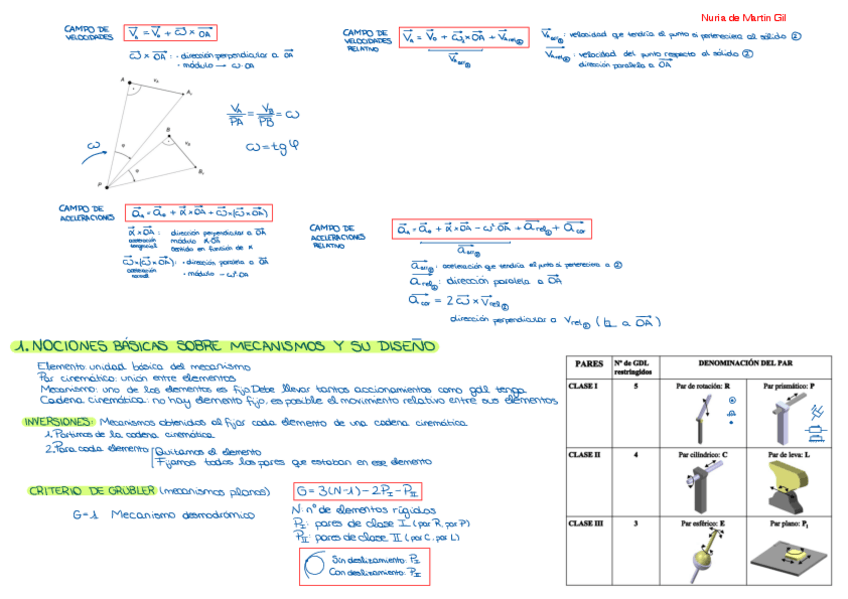 Nuria de Martin Gil
CAMPO DE VELOCIDADES
V_A = V_o + ω × OA
ω × OA : · dirección perpendicular a OA
· módulo → ω·OA
V_A/PA = V_B/PB = ω
ω = tg φ
CAMPO DE VELOCIDADES RELATIVO
V_A = V_o + ω_2 × OA + V_Arel②
V_Aarr②
V_Aarr② : velocidad que tendría el punto si perteneciera al sólido ②
V_Arel② : velocidad del punto respecto al sólido ②
dirección paralela a OA
CAMPO DE ACELERACIONES
a_A = a_o + α × OA + ω × (ω × OA)
α × OA : dirección perpendicular a OA
aceleración tangencial
módulo α·OA
sentido en función de α
ω × (ω × OA) : · dirección paralela a OA
aceleración normal
· módulo – ω²·OA
CAMPO DE ACELERACIONES RELATIVO
a_A = a_o + α × OA – ω² OA + a_rel② + a_cor
a_arr②
a_arr② : aceleración que tendría el punto si perteneciera a ②
a_rel② : dirección paralela a OA
a_cor = 2 ω × V_rel②
dirección perpendicular a V_rel② ( a OA)
1. NOCIONES BÁSICAS SOBRE MECANISMOS Y SU DISEÑO
Elemento: unidad básica del mecanismo
Par cinemático: unión entre elementos
Mecanismo: uno de los elementos es fijo. Debe llevar tantos accionamientos como gdl tenga
Cadena cinemática: no hay elemento fijo, es posible el movimiento relativo entre sus elementos
INVERSIONES: Mecanismos obtenidos al fijar cada elemento de una cadena cinemática
1. Partimos de la cadena cinemática
2. Para cada elemento
Quitamos el elemento
Fijamos todos los pares que estaban en ese elemento
CRITERIO DE GRÜBLER (mecanismos planos)
G = 3(N-1) – 2P_I – P_II
G=1 Mecanismo desmodrómico
N: nº de elementos rígidos
P_I: pares de clase I (par R, par P)
P_II: pares de clase II (par C, par L)
Sin deslizamiento: P_I
Con deslizamiento: P_II
PARES
Nº de GDL restringidos
DENOMINACIÓN DEL PAR
CLASE I
5
Par de rotación: R
Par prismático: P
CLASE II
4
Par cilíndrico: C
Par de leva: L
CLASE III
3
Par esférico: E
Par plano: P_l